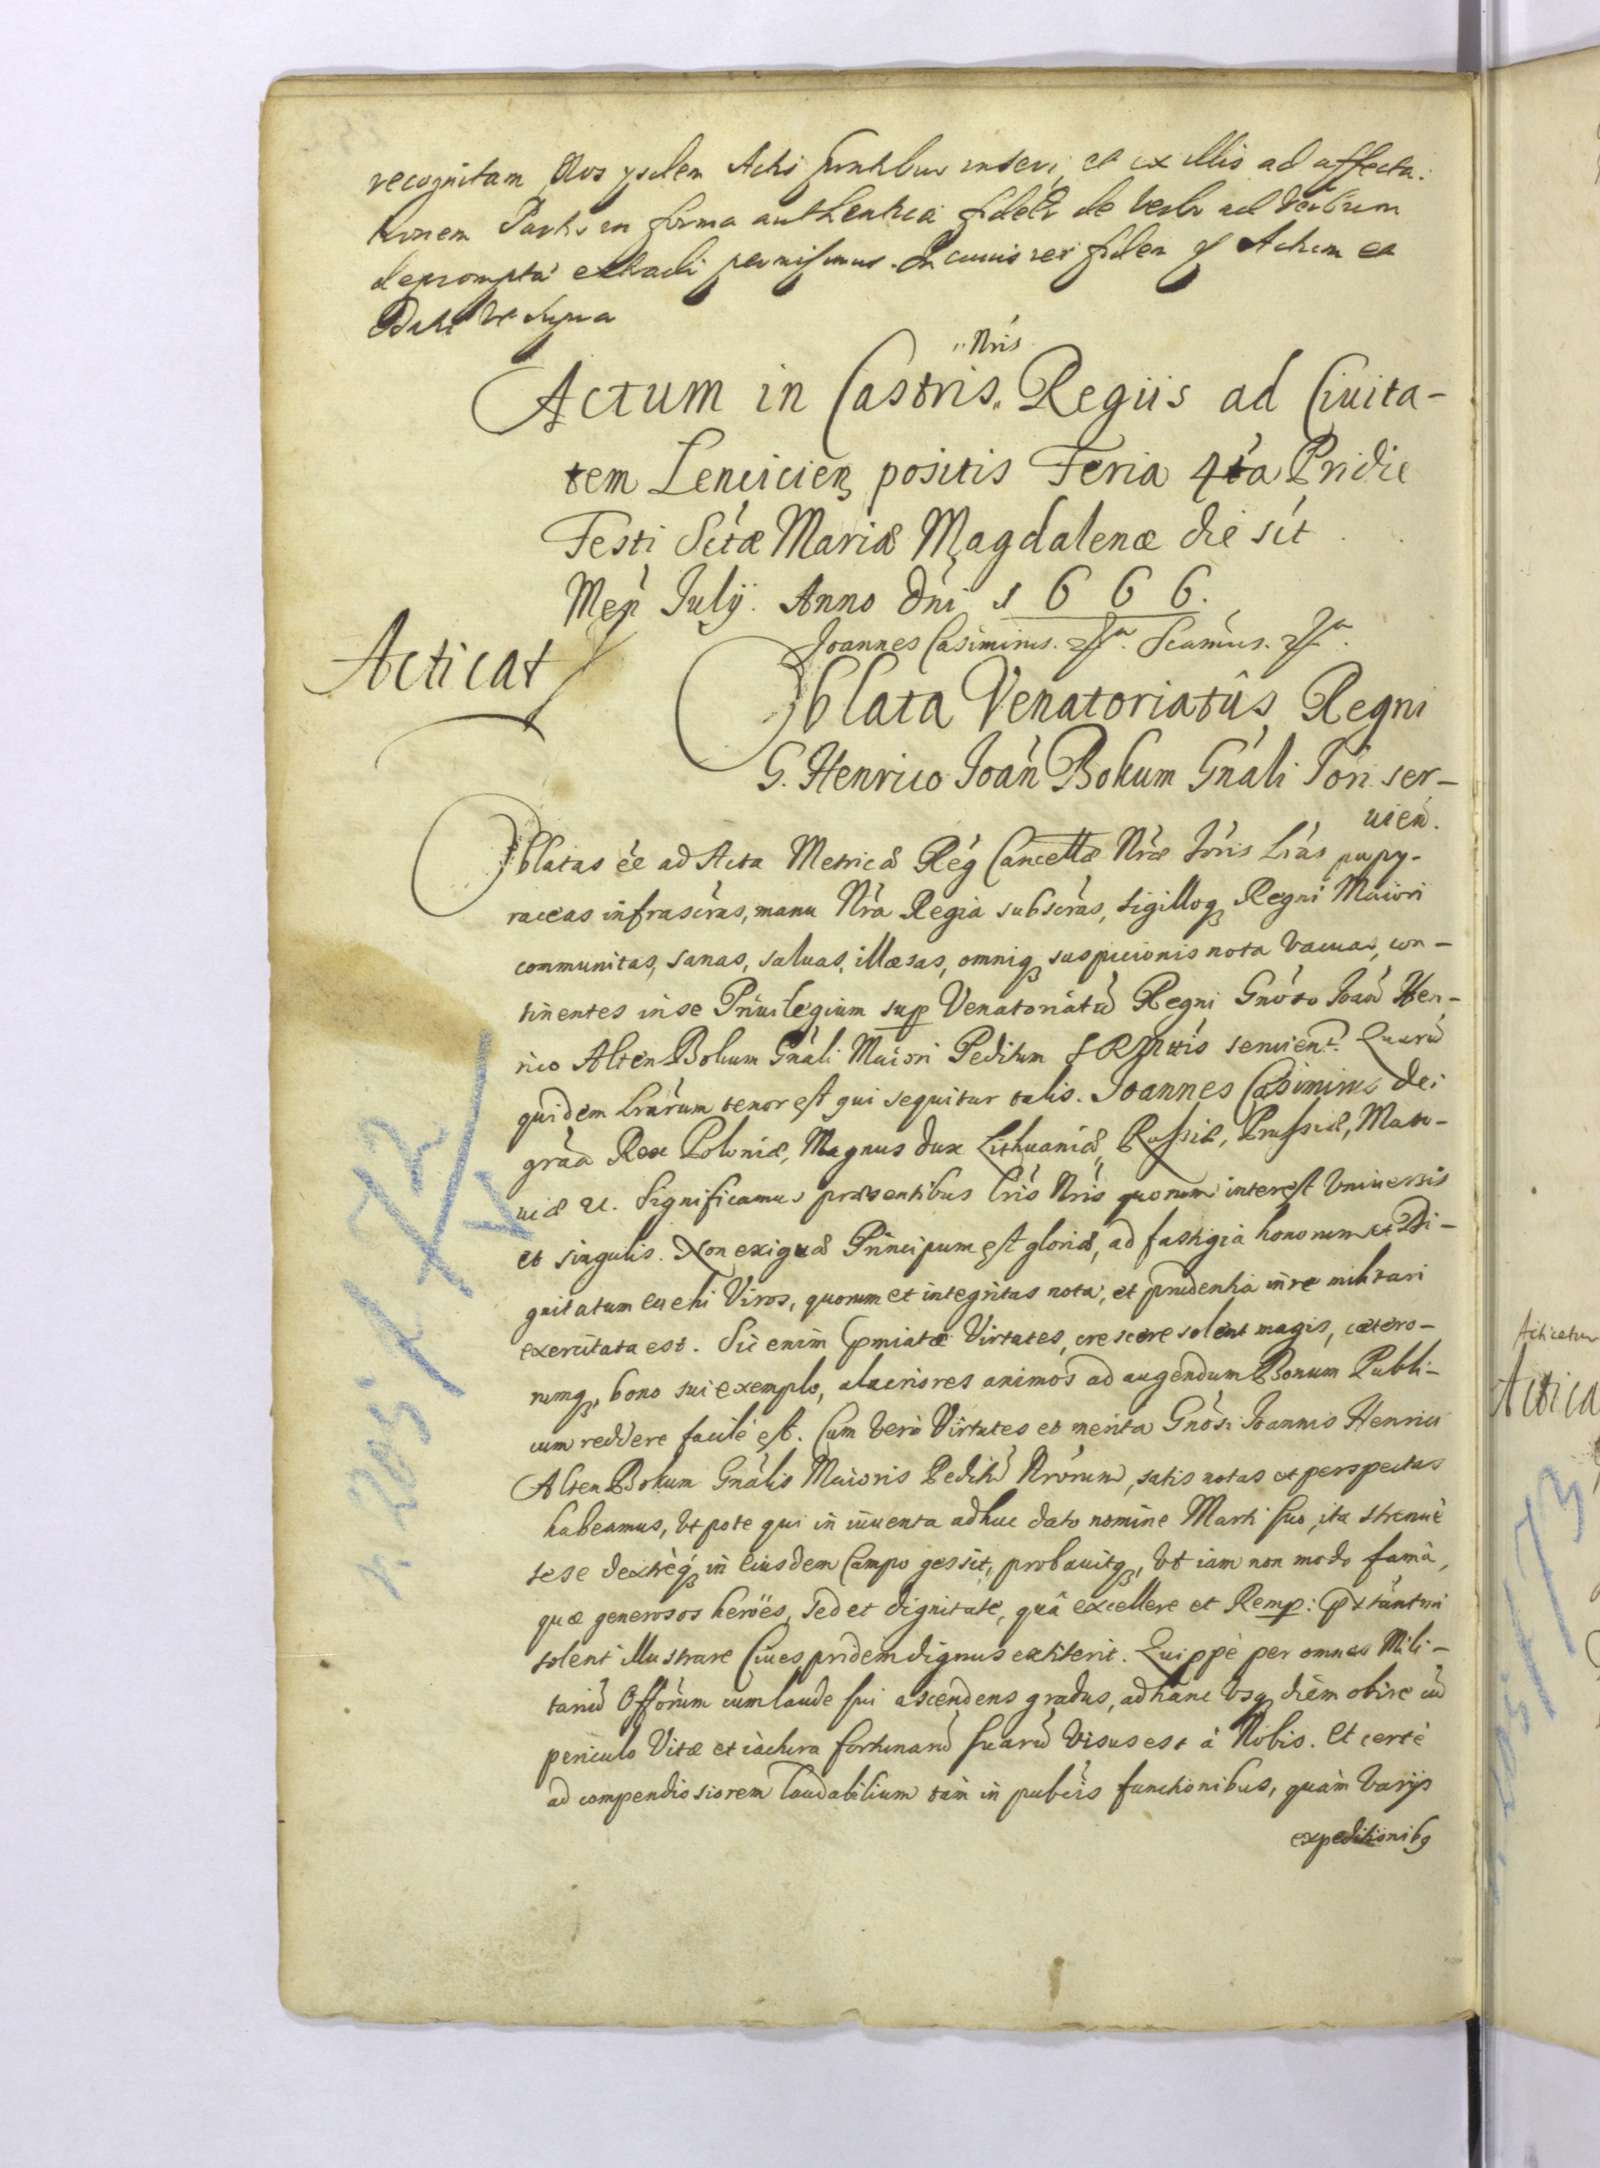 recognitam Nos ysdem Actis pntibus inseri, et ex illis ad affecta-
tionem Partis in forma authentica fideli de verbo ad verbum
deprompta extradi permisimus. In cuius rei fidem Actum et
Datt Vt supra
Nris
Actum in Castris Regiis ad Ciuita-
tem Lencicien positis Feria 4ta Pridie
Festi Sctæ Mariæ Magdalenæ die sct
Men July. Anno Dni 1666.
Joannes Casimirus.
Acticat
Oblata Venatoriatûs Regni
G. Henrico Joan Bokum Gnali Jori ser-
uien.
Oblatas ee ad Acta Metricæ Reg Cancellæ Nræ Joris Lras papy-
raceas infrascras, manu Nra Regia subscras, sigilloq Regni Maiori
communitas, sanas, saluas, illæsas, omniq suspicionis nota vacuas, con-
tinentes in se Priuilegium sup Venatoriatu Regni Gnoso Joan Hen-
rico Alten Bokum Gnali Maiori Peditum seruient. Quaru
quidem Lrarum tenor est qui sequitur talis. Joannes Casimirus Dei
graa Rex Poloniæ, Magnus Dux Lithuaniæ, Russiæ, Prussiæ, Maso-
uiæ &. Significamus præsentibus Lris Nris quorum interest Vniuersis
et singulis. Non exigua Principum est gloria, ad fastigia honorum et Di-
gnitatum euehi Viros, quorum et integritas nota, et prudentia in re militari
exercitata est. Sic enim pmiatæ Virtutes, crescere solent magis, cætero-
rumq, bono sui exemplo, alacriores animos ad augendum Bonum Publi-
cum reddere facile est. Cum vero Virtutes et merita Gnosi Joannis Henrici
Alten Bokum Gnalis Maioris Peditu Nrorum, satis notas et perspectas
habeamus, Vt pote qui in iuuenta adhuc dato nomine Marti suo, ita strenuè
sese dextreq in eiusdem Campo gessit, probauitq, Vt iam non modo famâ,
quæ generosos heroës, sed et dignitate, quâ excellere et Remp:
solent illustrare Ciues pridem dignus extiterit. Quippè per omnes Mili-
tariu Offorum cum laude sui ascendens gradus, ad hanc vsq diem obire cu
periculo Vitæ et iactura fortunaru suaru visus est à Nobis. Et certè
ad compendiosiorem laudabilium tam in publicis functionibus, quàm varijs
expeditionibq
Acticatur
Actica